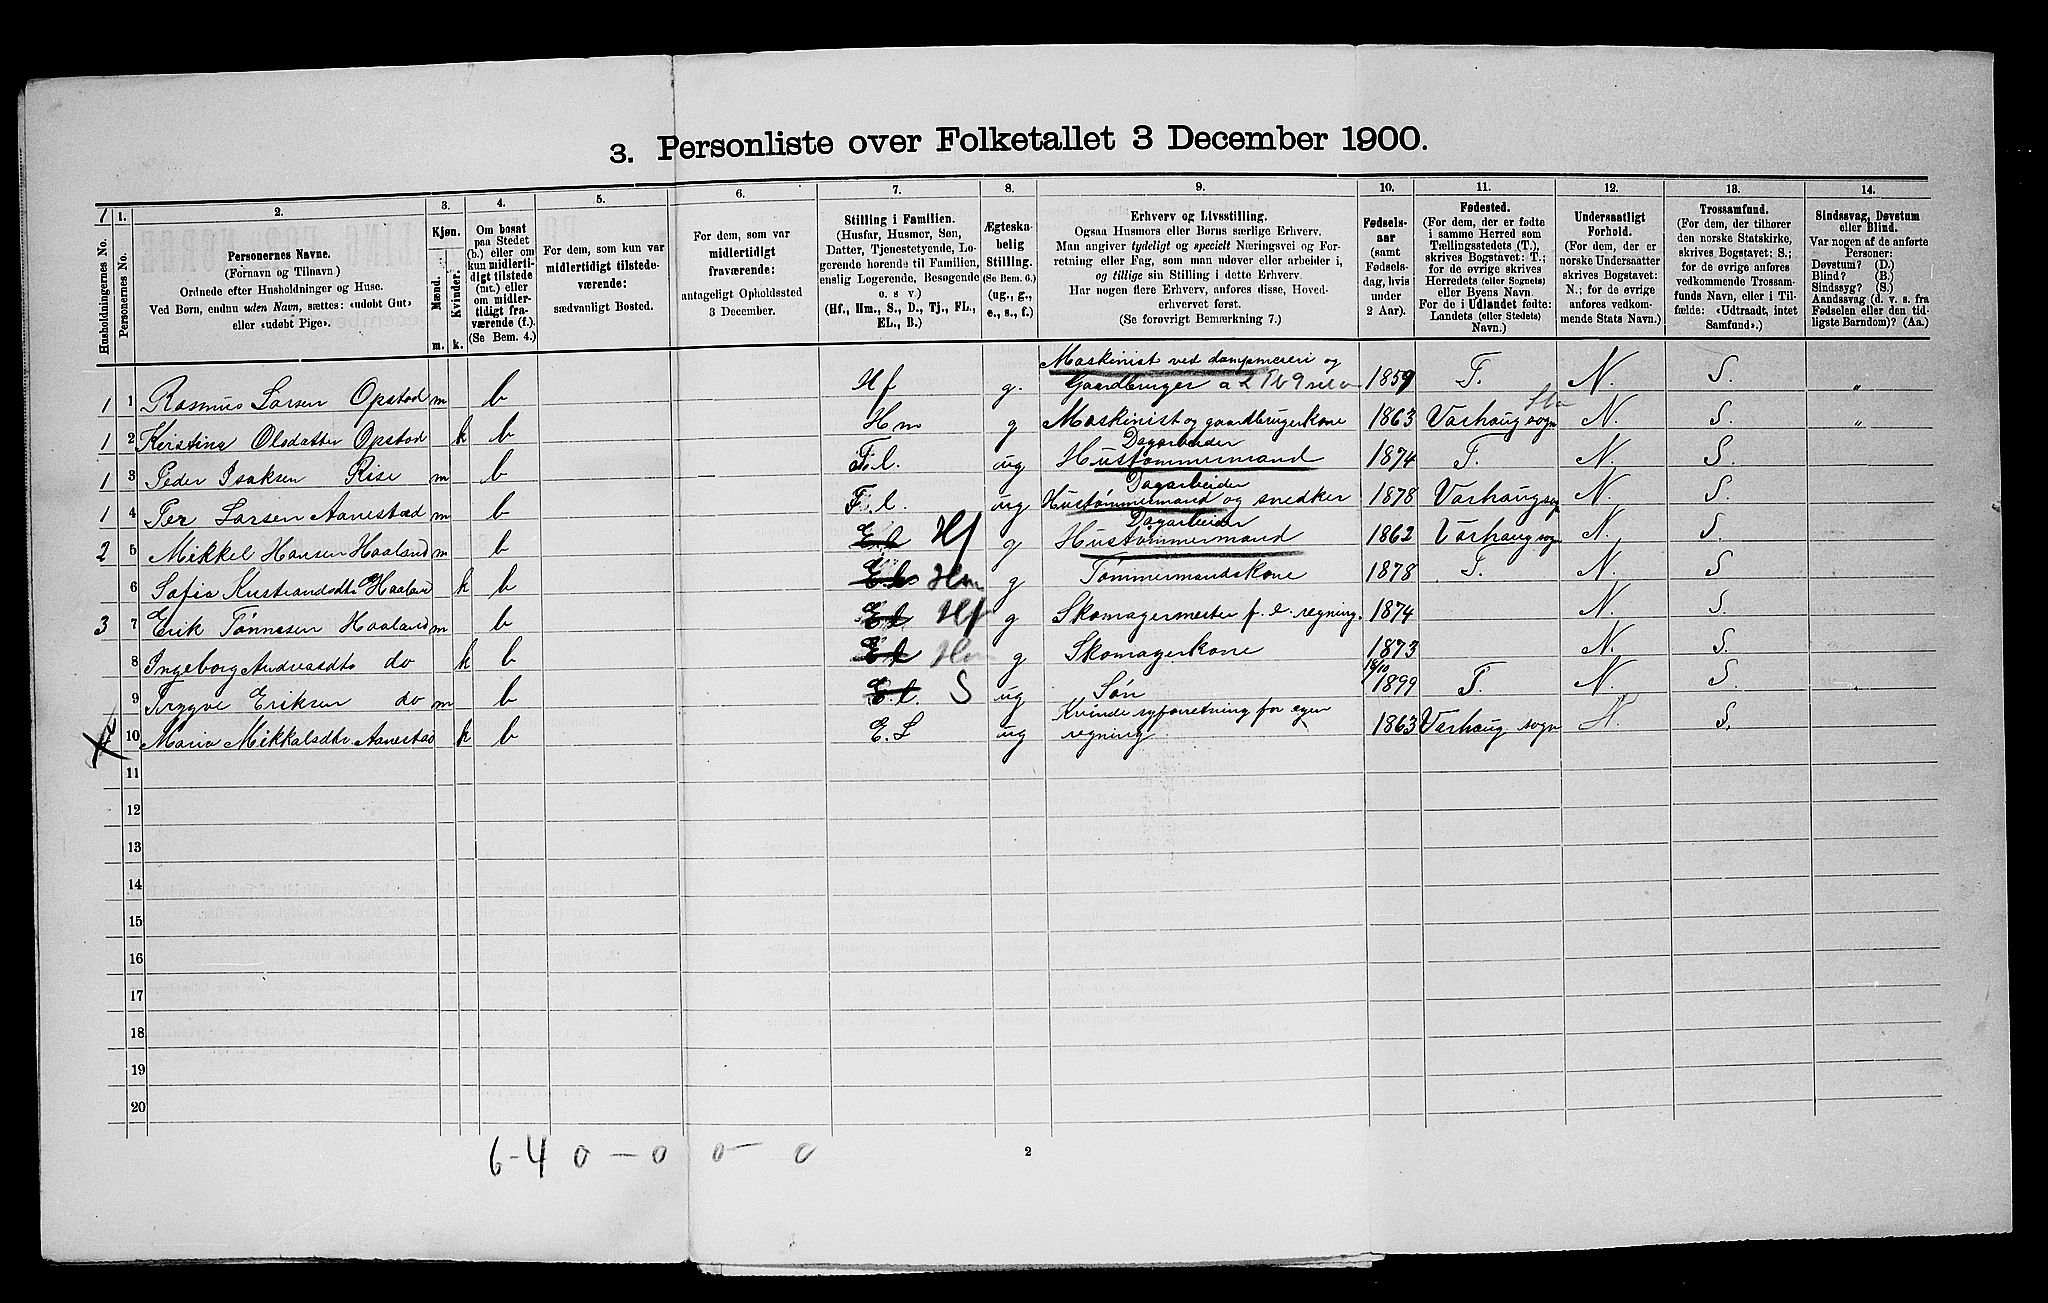 3. Personliste over Folketallet 3 December 1900.
1
Husholdningernes No.
1.
Personernes No.
2.
Personernes Navne.
(Fornavn og Tilnavn)
Ordnede efter Husholdninger og Huse.
Ved Børn, endnu uden Navn, sættes: «udøbt Gut»
eller «udøbt Pige».
3.
Kjøn.
Mænd.
Kvinder.
m. k.
4.
Om bosat
paa Stedet
(b.) eller om
kun midlerti-
digt tilstede
(mt.) eller
om midler-
tidigt fra-
værende (f.).
(Se Bem. 4.)
5.
For dem, som kun var
midlertidigt tilstede-
værende:
sædvanligt Bosted.
6.
For dem, som var
midlertidigt
fraværende:
antageligt Opholdssted
3 December.
7.
Stilling i Familien.
(Husfar, Husmor, Søn,
Datter, Tjenestetyende, Lo-
gerende hørende til Familien,
enslig Logerende, Besøgende
o. s v)
(Hf., Hm., S., D., Tj., FL.,
EL., B.)
8.
Ægteska-
belig
Stilling.
(Se Bem. 6.)
(ug., g.,
e., s., f.)
9.
Erhverv og Livsstilling.
Ogsaa Husmors eller Børns særlige Erhverv.
Man angiver tydeligt og specielt Næringsvei og For-
retning eller Fag, som man udøver eller arbeider i,
og tillige sin Stilling i dette Erhverv.
Har nogen flere Erhverv, anføres disse, Hoved-
erhvervet først.
(Se forøvrigt Bemærkning 7.)
10.
Fødsels-
aar
(samt
Fødsels-
dag, hvis
under
2 Aar).
11.
Fødested.
(For dem, der er fødte
i samme Herred som
Tællingsstedets (T.),
skrives Bogstavet: T.;
for de øvrige skrives
Herredets (eller Sognets)
eller Byens Navn.
For de i Udlandet fødte:
Landets (eller Stedets)
Navn.)
12.
Undersaatligt
Forhold.
(For dem, der er
norske Undersaatter
skrives Bogstavet:
N.; for de øvrige
anføres vedkom-
mende Stats Navn.)
13.
Trossamfund.
(For dem, der tilhører
den norske Statskirke,
skrives Bogstavet: S.;
for de øvrige anføres
vedkommende Trossam-
funds Navn, eller i Til-
fælde: «Udtraadt, intet
Samfund».)
14.
Sindssvag, Døvstum
eller Blind.
Var nogen af de anførte
Personer:
Døvstum? (D.)
Blind? (B.)
Sindssyg? (S.)
Aandssvag (d. v. s. fra
Fødselen eller den tid-
ligste Barndom)? (Aa.)
Maskinist ved dampmeieri og
1 1 Rasmus Larsen Opstad m b Hf g. Gaardbruger 1859 T. N. S. "
1 2 Kirstina Olsdatter Opstad k b Hm g Maskinist og gaardbrugerkone 1863 Varhaug sogn N. S. "
Dagarbeider
1 3 Peder Isaksen Rise m b F.l. ug Hustømmermand 1874 T. N. S.
Dagarbeider
1 4 Per Larsen Aanestad m b F.l. ug Hustømmermand og snedker 1878 Varhaug sogn N. S.
Dagarbeider
2 5 Mikkel Hansen Haaland m b E.l Hf g Hustømmermand 1862 Varhaug sogn N. S.
6 Sofia Haaland k b E.l. Hm g Tømmermandskone 1878 T. N. S
3 7 Erik Tønnesen Haaland m b E.l Hf g Skomagermester f. e. regning. 1874 N. S.
8 Ingeborg Andreasdtr do k b E.l Hm g Skomagerkone 1873 N. S.
9 Trygve Eriksen do m b E.l. S ug Søn 1899 T. N. S. "
Kvinde syforretning for egen
10 Maria Mikkalsdtr Aanestad k b E.L ug regning. 1863 Varhaug sogn N. S.
11
12
13
14
15
16
17
18
19
20
6-4 0 - 0 0 - 0
2